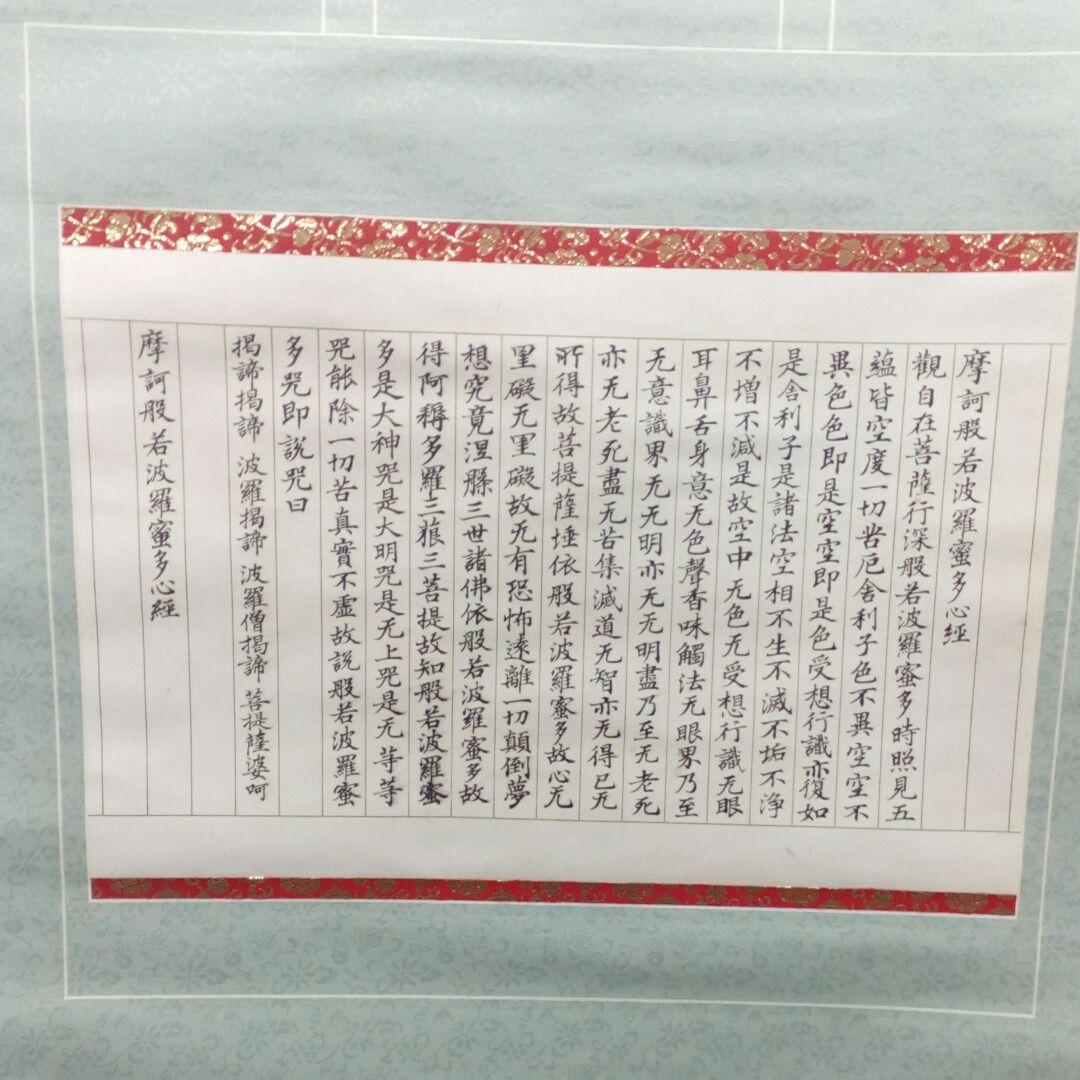 摩訶般若波羅蜜多心經
觀自在菩薩行深般若波羅蜜多時照見五
蘊皆空度一切苦厄舍利子色不異空空不
異色色即是空空即是色受想行識亦復如
是舍利子是諸法空相不生不滅不垢不淨
不增不減是故空中无色无受想行識无眼
耳鼻舌身意无色聲香味觸法无眼界乃至
无意識界无无明亦无无明盡乃至无老死
亦无老死盡无苦集滅道无智亦无得已无
所得故菩提薩埵依般若波羅蜜多故心无
罣礙无罣礙故无有恐怖遠離一切顛倒夢
想究竟涅槃三世諸佛依般若波羅蜜多故
得阿耨多羅三藐三菩提故知般若波羅蜜
多是大神咒是大明咒是无上咒是无等等
咒能除一切苦真實不虛故說般若波羅蜜
多咒即說咒曰
揭諦揭諦 波羅揭諦 波羅僧揭諦 菩提薩婆呵
摩訶般若波羅蜜多心經